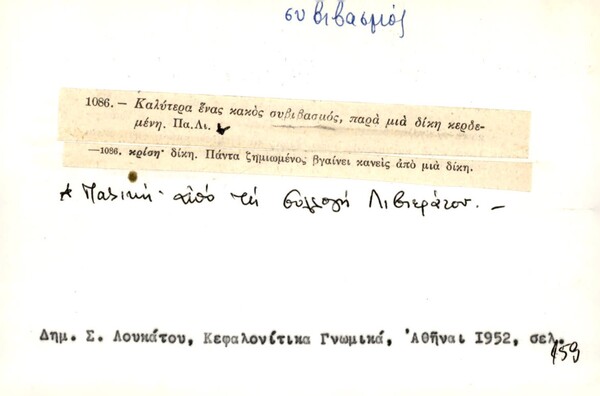 συμβιβασμός
1086. — Καλύτερα ἕνας κακὸς συβιβασμός, παρὰ μιὰ δίκη κερδε-
μένη. Πα.Λι.
—1086. κρίση· δίκη. Πάντα ζημιωμένος βγαίνει κανεὶς ἀπὸ μιὰ δίκη.
ἀπὸ τὴ συλλογὴ Λιβιεράτου. —
Δημ. Σ. Λουκάτου, Κεφαλονίτικα Γνωμικά, Ἀθῆναι 1952, σελ.
159